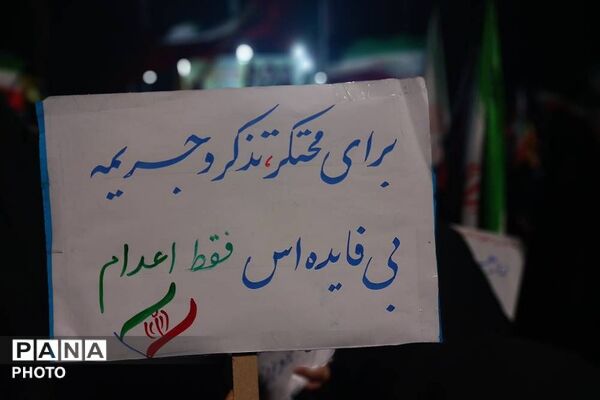 برای محتکر، تذکر و جریمه
بی فایده اس فقط اعدام
PANA
PHOTO